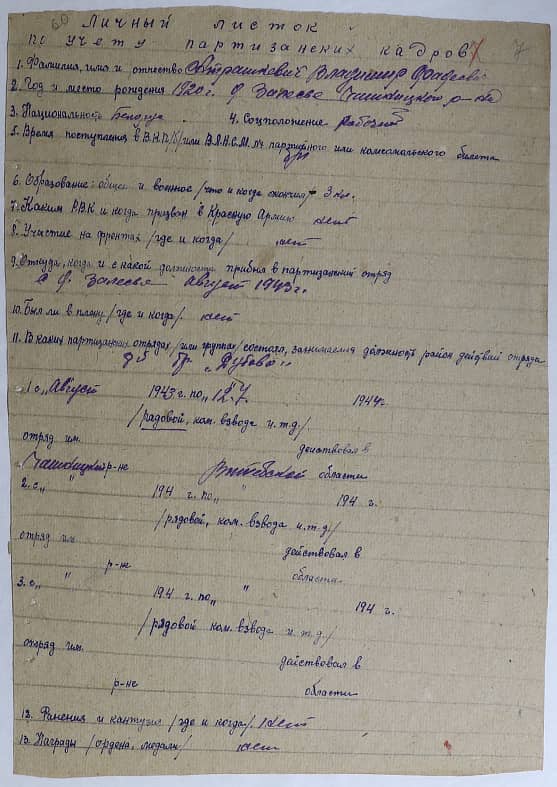 60 Личный листок 7
по учету партизанских кадров
1. Фамилия, имя и отчество Петрашкевич Владимир Фадеев
2. Год и место рождения 1920 г. д. Залесье Чашникского р-на
3. Национальность Белорус. 4. Соцположение рабочий
5. Время поступления в В.К.П./К/ или В.Л.К.С.М. № партийного или комсомольского билета
б/п
6. Образование: общее и военное /что и когда окончил/ 3 кл.
7. Каким Р.В.К и когда призван в Красную Армию нет
8. Участие на фронтах /где и когда/ нет
9. Откуда, когда и с какой должности прибыл в партизанский отряд
д. Залесье август 1943 г.
10. Был ли в плену /где и когда/ нет
11. В каких партизанских отрядах /или группах/ состоял, занимаемая должность район действий отряда
бр. „Дубова"
1 с „Август 1943 г. по „12.7. 1944 г.
/рядовой, ком. взвода и.т.д/
отряд им. действовал в
Чашникском р-не Витебской области
2. с „ " 194 г. по „ " 194 г.
/рядовой, ком. взвода и.т.д./
отряд им. действовал в
р-не области
3. с „ " 194 г. по „ " 194 г.
/рядовой ком. взвода и т.д./
отряд им. действовал в
р-не области
12. Ранения и кантузия /где и когда/. нет
13. Награды /ордена, медали/ нет